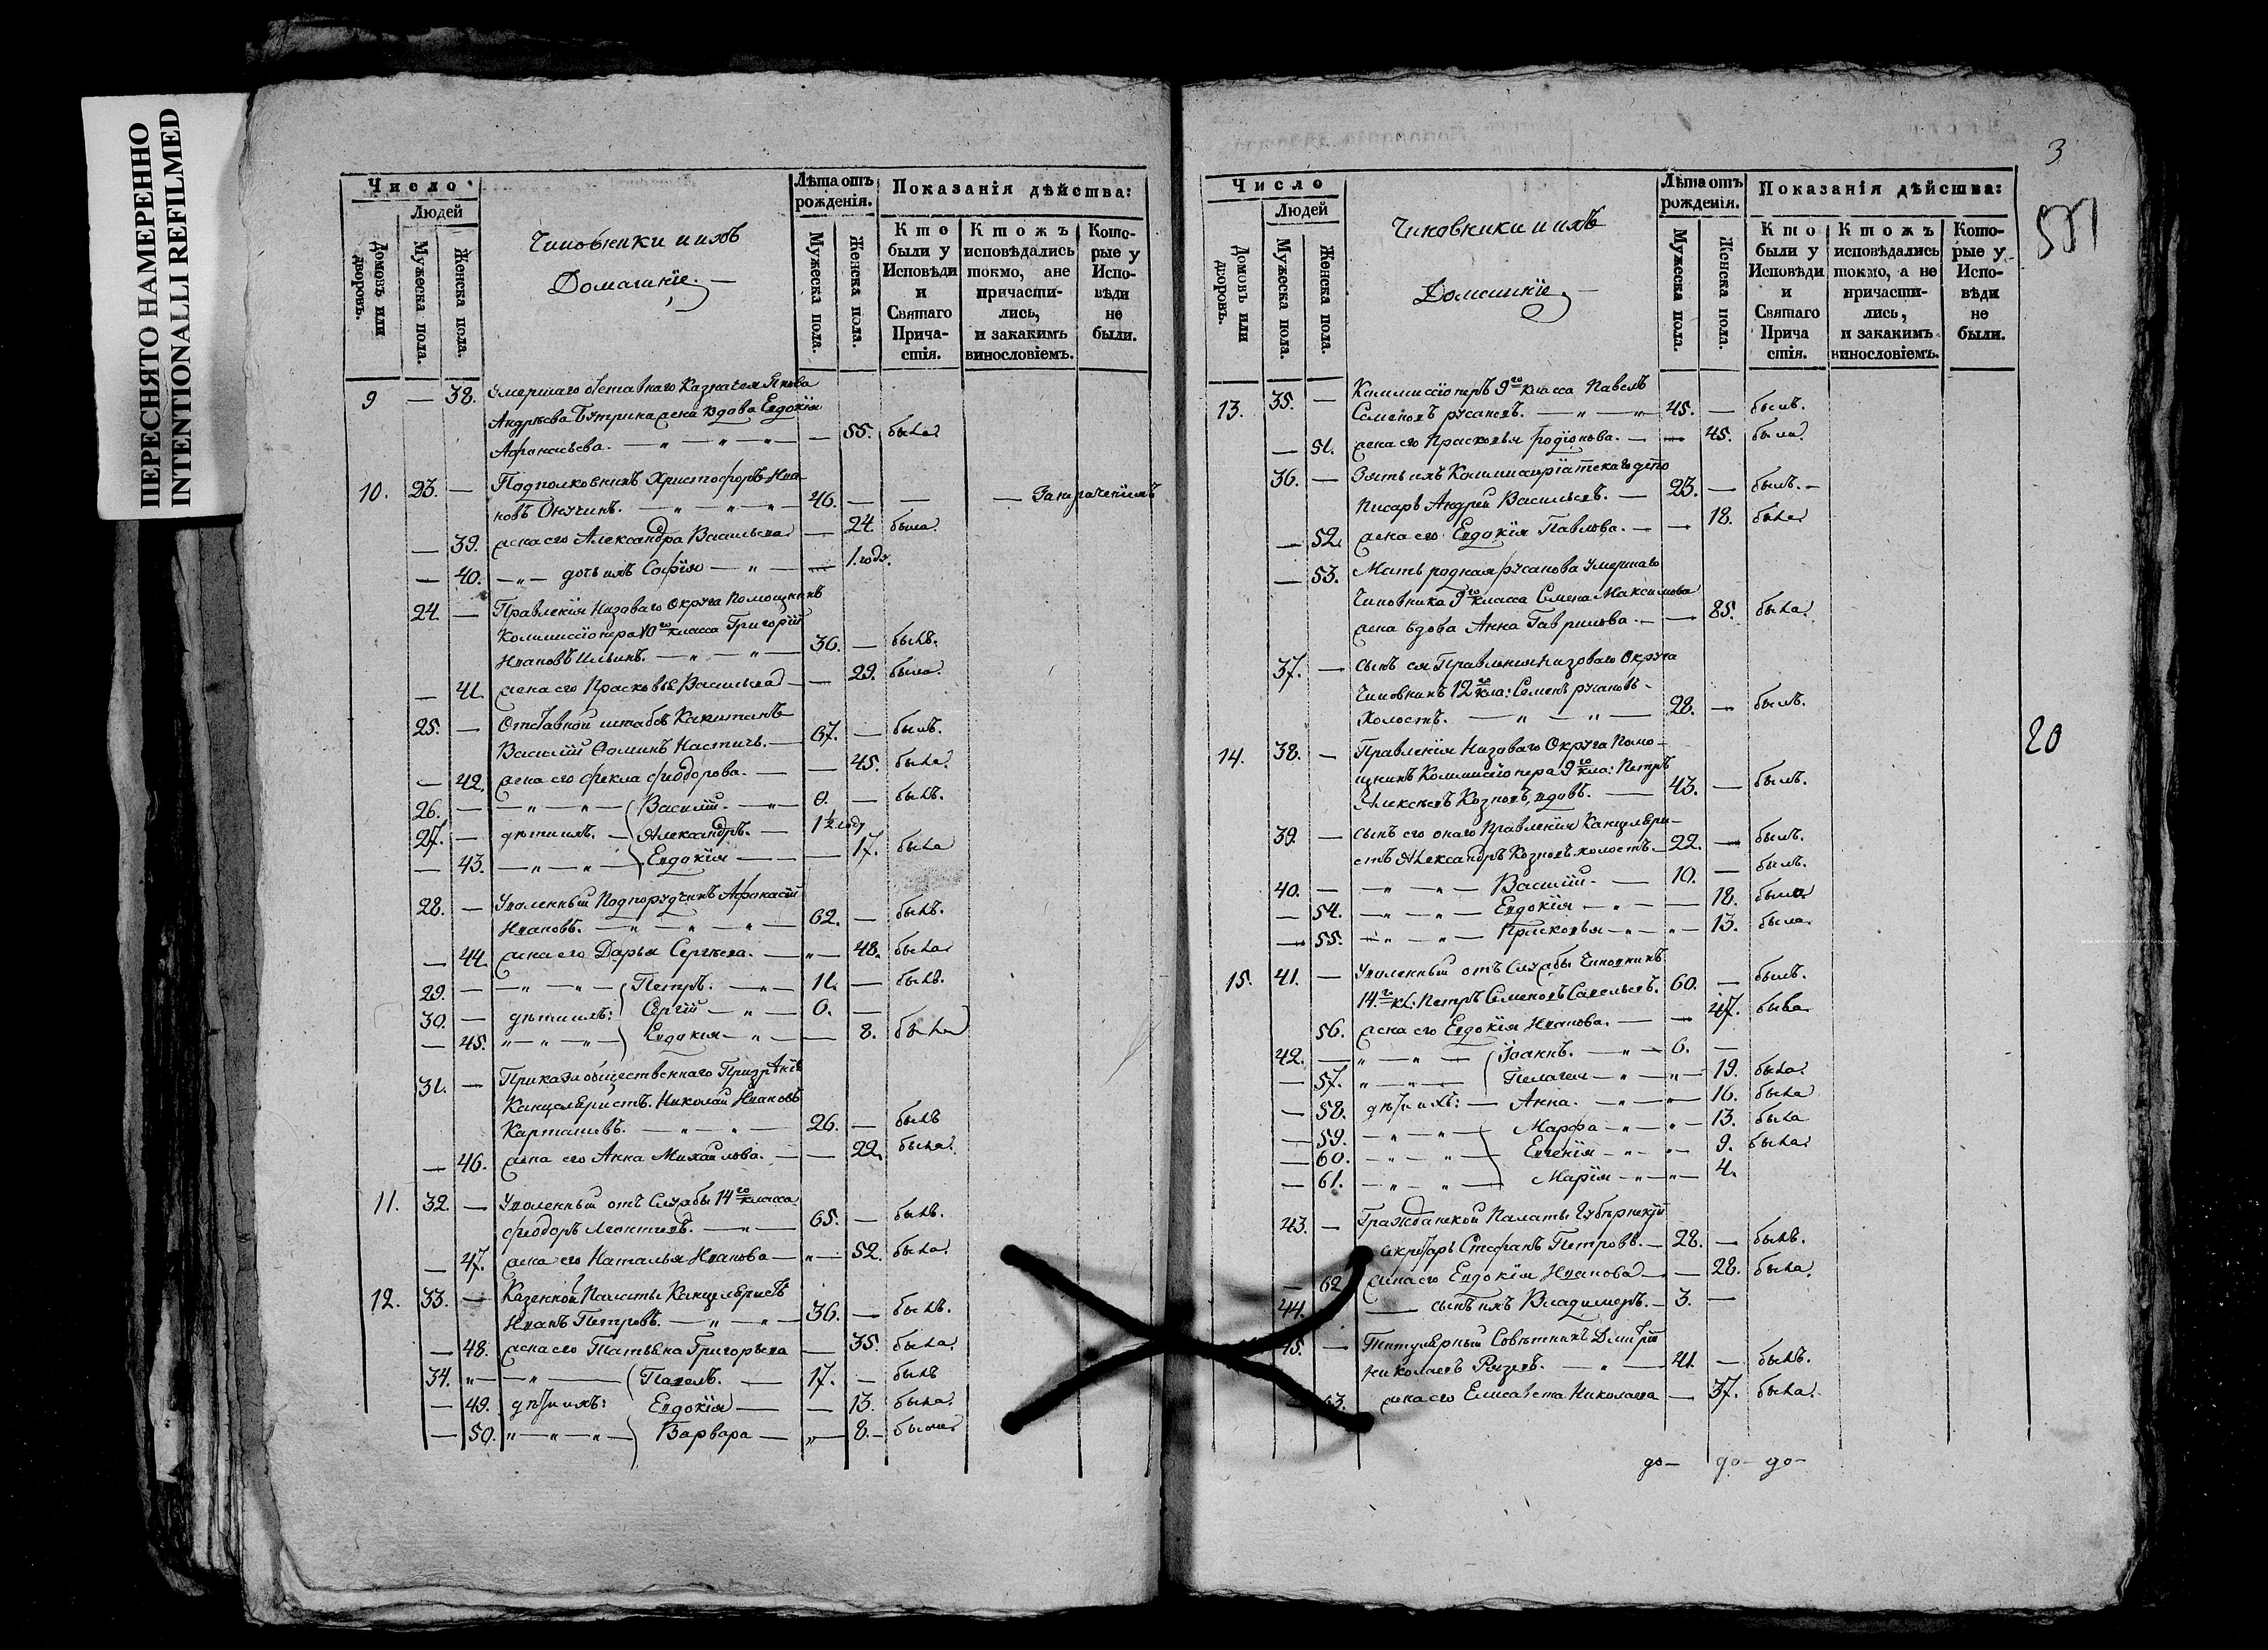 ПЕРЕСНЯТО НАМЕРЕННО
INTENTIONALLI REFILMED
Число
Людей
Домовъ или дворовъ.
Мужеска пола.
Женска пола.
Чиновники и ихъ
Домашніе.
Лѣта отъ рожденія.
Мужеска пола.
Женска пола.
Показанія дѣйства:
Кто были у Исповѣди и Святаго Причастія.
Ктожъ исповѣдались токмо, ане причастились, и закакимъ винословіемъ.
Которые у Исповѣди не были.
9 — 38. Умершаго
Андрѣева жена вдова Евдокія
Афонасьева. — 55. была
10. 23. — Подполковникъ Христофоръ Ива-
новъ Онучинъ. — 46. — — —
— 39. жена его Александра Васильева — 24. была
— 40. — дочь ихъ Софія — 1 годъ.
24. — Правленія Низоваго Округа Помощникъ
Коммиссіонера 10го класса Григорій
Ивановъ Ильинъ. — 36. — былъ.
— 41. жена его Прасковья Васильева — 29. была
25. — Отставной штабсъ Капитанъ
Василій Фоминъ Настичъ. — 67. — былъ.
— 42. жена его Фекла Феодорова. — 45. была
26. — Василій. — 9. — былъ.
27. — дѣти ихъ. — Александръ. — 1½ году
— 43. — Евдокія — 17. была
28. — Уволенный Подпоручикъ Афонасій
Ивановъ. — 62. — былъ.
— 44. жена его Дарья Сергѣева. — 48. была
29. — Петръ. — 11. — былъ.
30. — дѣти ихъ: Сергій — 6. —
— 45. Евдокія — 8. была
31. — Приказа общественнаго Призрѣнія
Канцеляристъ. Николай Ивановъ
Карташевъ. — 26. — былъ
— 46. жена его Анна Михайлова. — 22. была
11. 32. — Уволенный отъ Службы 14го класса
Феодоръ Леонтьевъ. — 65. — былъ.
— 47. жена его Наталья Иванова — 52. была
12. 33. — Казенной Палаты Канцеляристъ
Иванъ Петровъ. — 36. — былъ.
— 48. жена его Татьяна Григорьева — 35. была
34. — Павелъ. — 17. — былъ
— 49. дѣти ихъ: Евдокія — 13. была
— 50. Варвара — 8. — была
3
20
Число
Людей
Домовъ или дворовъ.
Мужеска пола.
Женска пола.
Чиновники и ихъ
Домашніе.
Лѣта отъ рожденія.
Мужеска пола.
Женска пола.
Показанія дѣйства:
Кто были у Исповѣди и Святаго Причастія.
Ктожъ исповѣдались токмо, а не причастились, и закакимъ винословіемъ.
Которые у Исповѣди не были.
13. 35. — Коммиссіонеръ 9го класса Павелъ
Семеновъ Русановъ. — 45. — былъ.
— 51. жена его Прасковья Родіонова. — 45. была
36. — Зять ихъ Коммисаріатскаго депо
Писарь Андрей Васильевъ. — 23. — былъ. —
— 52. жена его Евдокія Павлова. — 18. была
— 53. Мать родная Русанова Умершаго
Чиновника 9го класса Семена Максимова
жена вдова Анна Гаврилова. — 85. была
37. — сынъ ея Правленія Низоваго Округа
Чиновникъ 12го кла: Семенъ Русановъ —
Холостъ. — 28. — былъ.
14. 38. — Правленія Низоваго Округа Помо-
щникъ Коммисіонера 9го кла: Петръ
Алексѣевъ Козловъ, вдовъ. — 43. — былъ.
39. — сынъ его онаго Правленія Канцеляри-
стъ Александръ Козловъ холостъ. — 22. — былъ.
40. — Василій. — 10. — былъ.
— 54. — Евдокія — 18. была
— 55. — Прасковья — 13. была
15. 41. — Уволенный отъ Службы Чиновникъ
14го кл: Петръ Семеновъ Савельевъ. 60. — былъ.
56. жена его Евдокія Иванова. — 47. была
42. — Іоаннъ. — 6. —
— 57. Пелагея — 19. была
— 58. дѣти ихъ: — Анна. — 16. была
— 59. Марфа — 13. была
— 60. Евгенія — 9. была
— 61. Марія — 4.
43. — Гражданской Палаты Губернскій
секретарь Стефанъ Петровъ. — 28. — былъ.
— 62 жена его Евдокія Иванова — 28. была
44. — сынъ ихъ Владимеръ. — 3. —
45. — Титулярный Совѣтникъ Дмитрій
Николаевъ — 41. — былъ.
63. жена его Елисавета Николаева — 37. была
до — до — до —